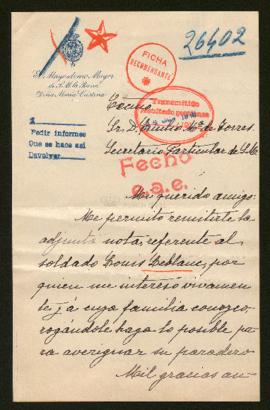 26402
El Mayordomo Mayor
de S. M. la Reina
Doña María Cristina
FICHA
RECOMENDANTE
Transmitido
Excmo.
Sr. D. Emilio Mª de Torres
Secretario Particular de S. M.
1
Pedir informes
Que se hace así
Devolver
Fecho
o.a.e.
Mi querido amigo:
Me permito remitirle la
adjunta nota, referente al
soldado Louis Leblanc, por
quien me intereso vivamen-
te, já cuya familia conozco,
rogándole haga lo posible pa-
ra averiguar su paradero
Mil gracias an-